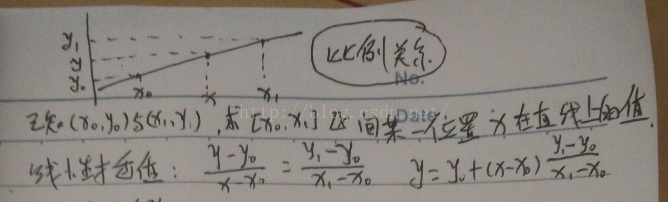 y₁
y
y₀
x₀ x x₁
比例关系
No.
Date
已知(x₀,y₀)与(x₁,y₁),求[x₀,x₁]区间某一位置x在直线上的值.
http://blog.csdn.net/
线性插值: (y-y₀)/(x-x₀) = (y₁-y₀)/(x₁-x₀) y=y₀+(x-x₀)(y₁-y₀)/(x₁-x₀)